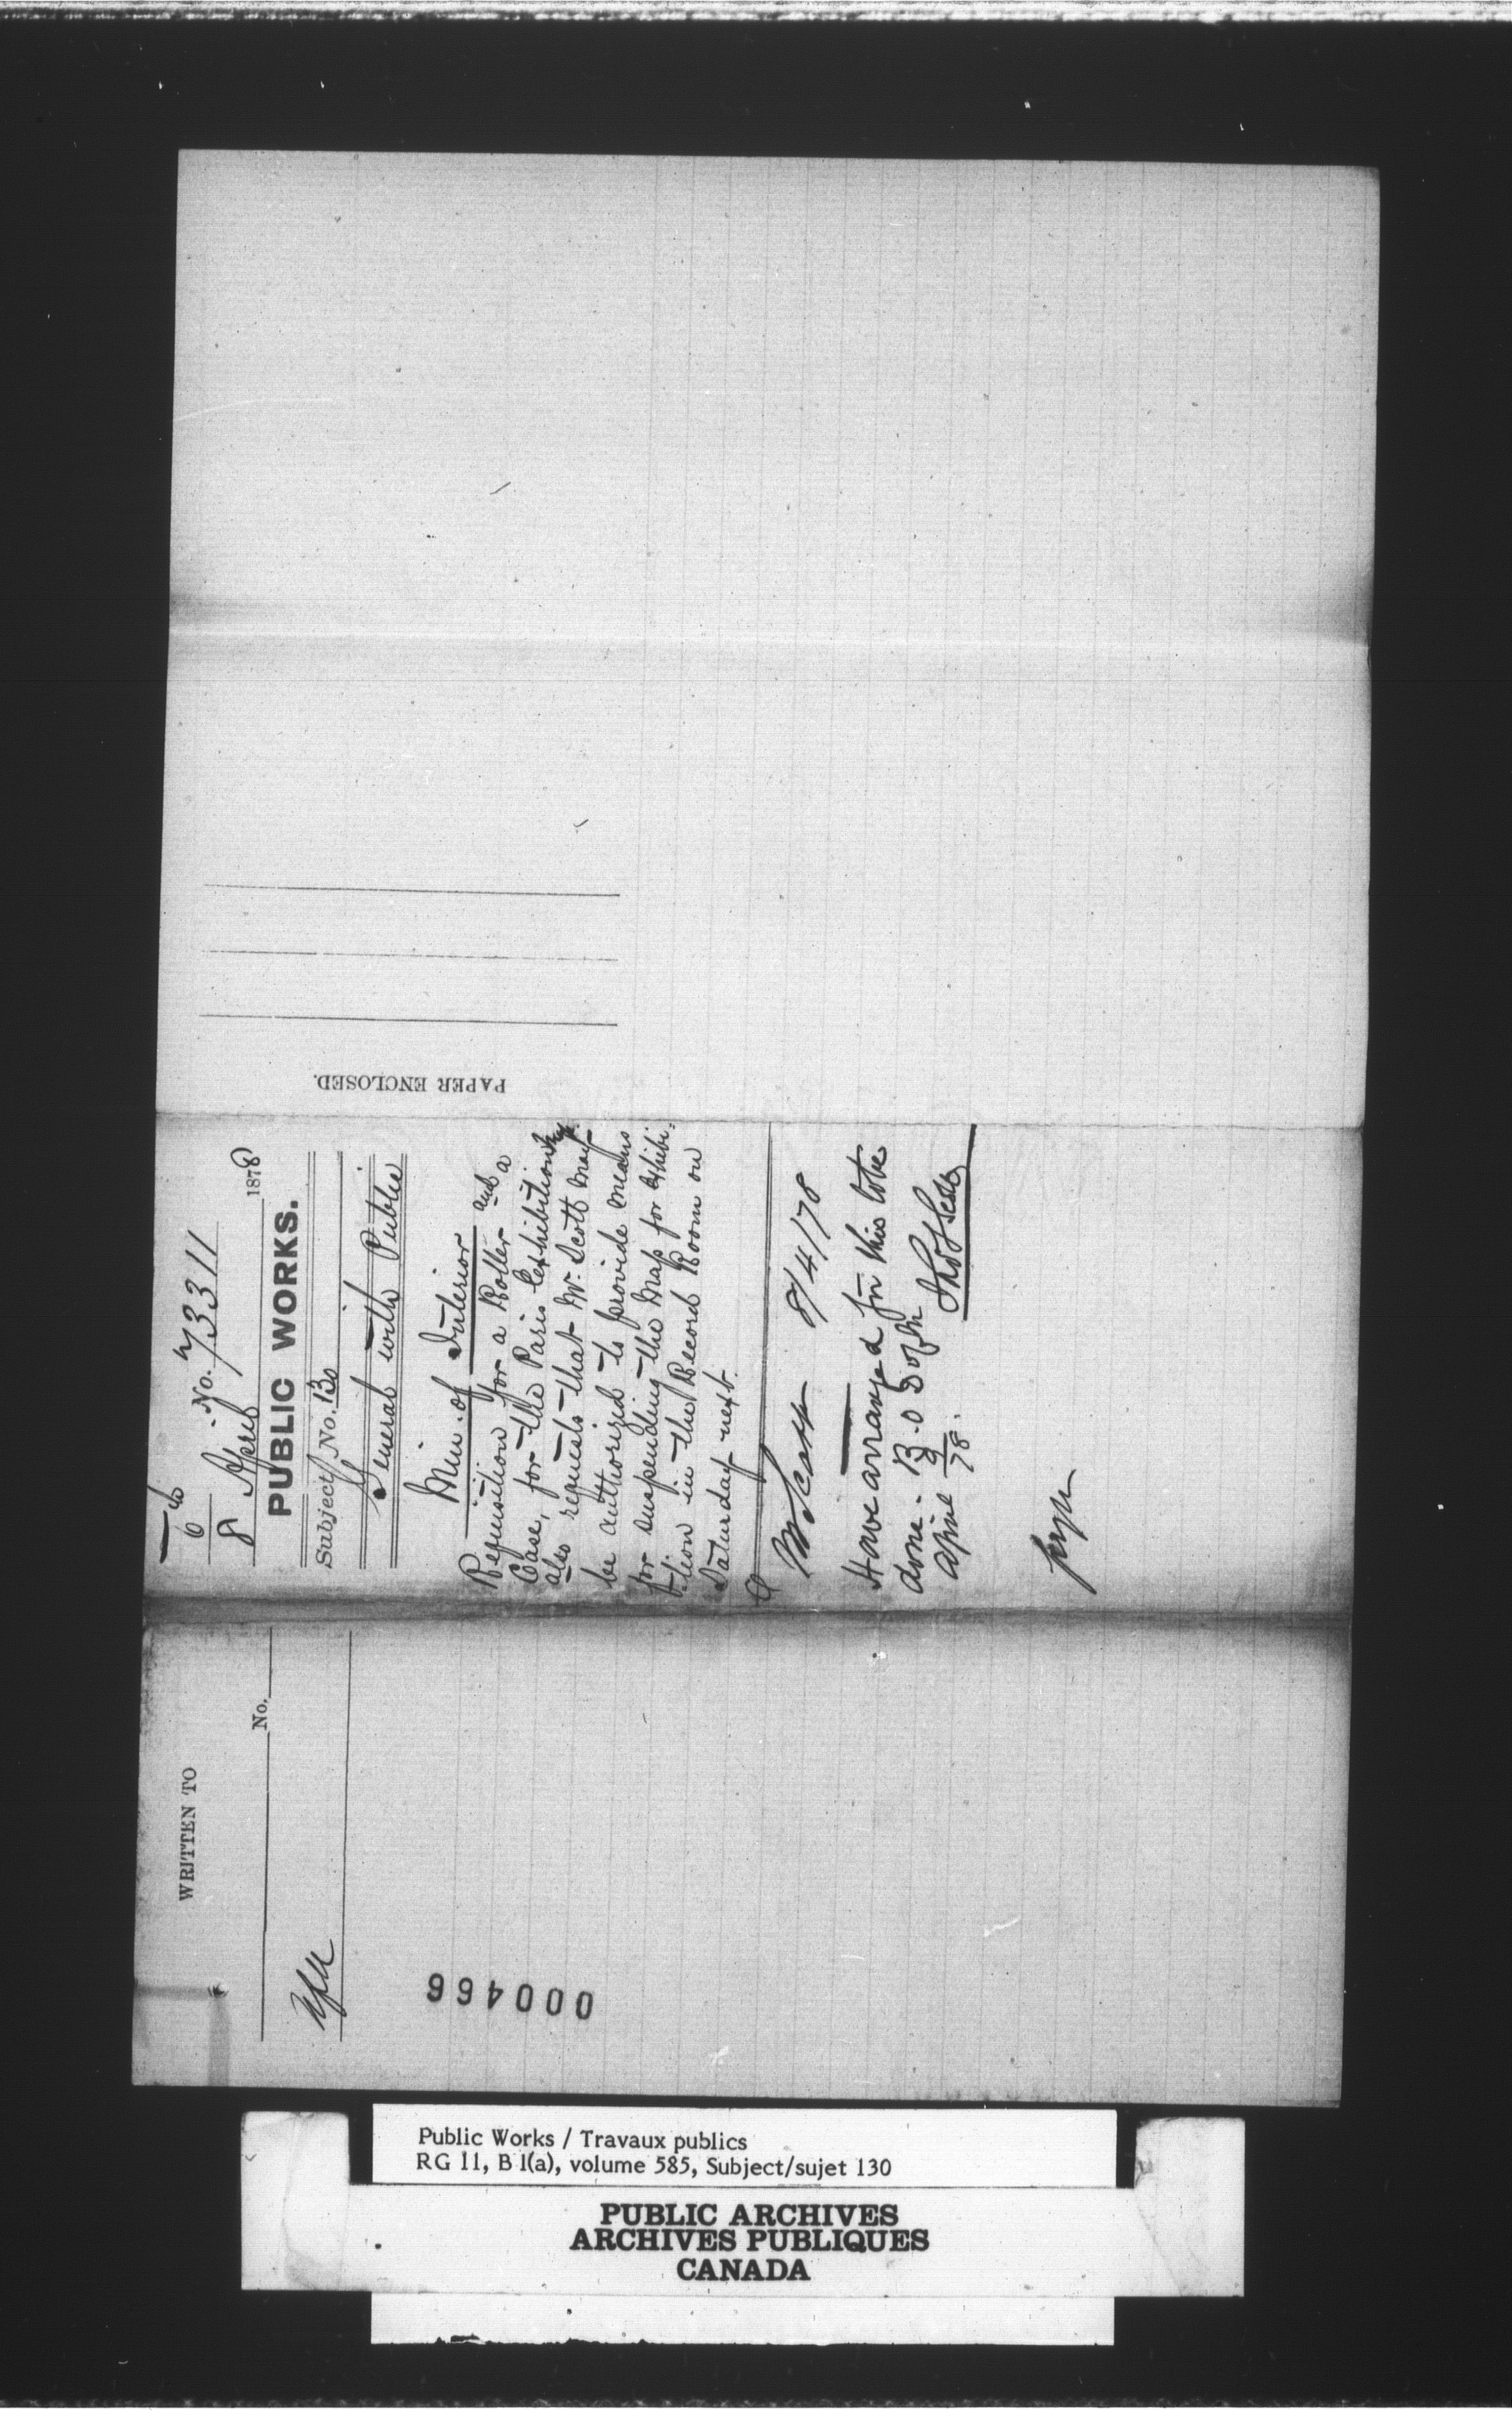 6
No. 73311
8 April 1878
PUBLIC WORKS.
Subject, No. 130
General with Public
Min. of Interior
Requisition for a Roller and a
Case, for the Paris Exhibition
also requests that Mr. Scott may
be authorized to provide means
for suspending the Map for exhibi-
tion in the Record Room on
Saturday next.
Mr Scott 8/4/78
Have arranged for this to be
done.
April 9/78.
PAPER ENCLOSED.
WRITTEN TO
No.
000466
Public Works / Travaux publics
RG 11, B 1(a), volume 585, Subject/sujet 130
PUBLIC ARCHIVES
ARCHIVES PUBLIQUES
CANADA